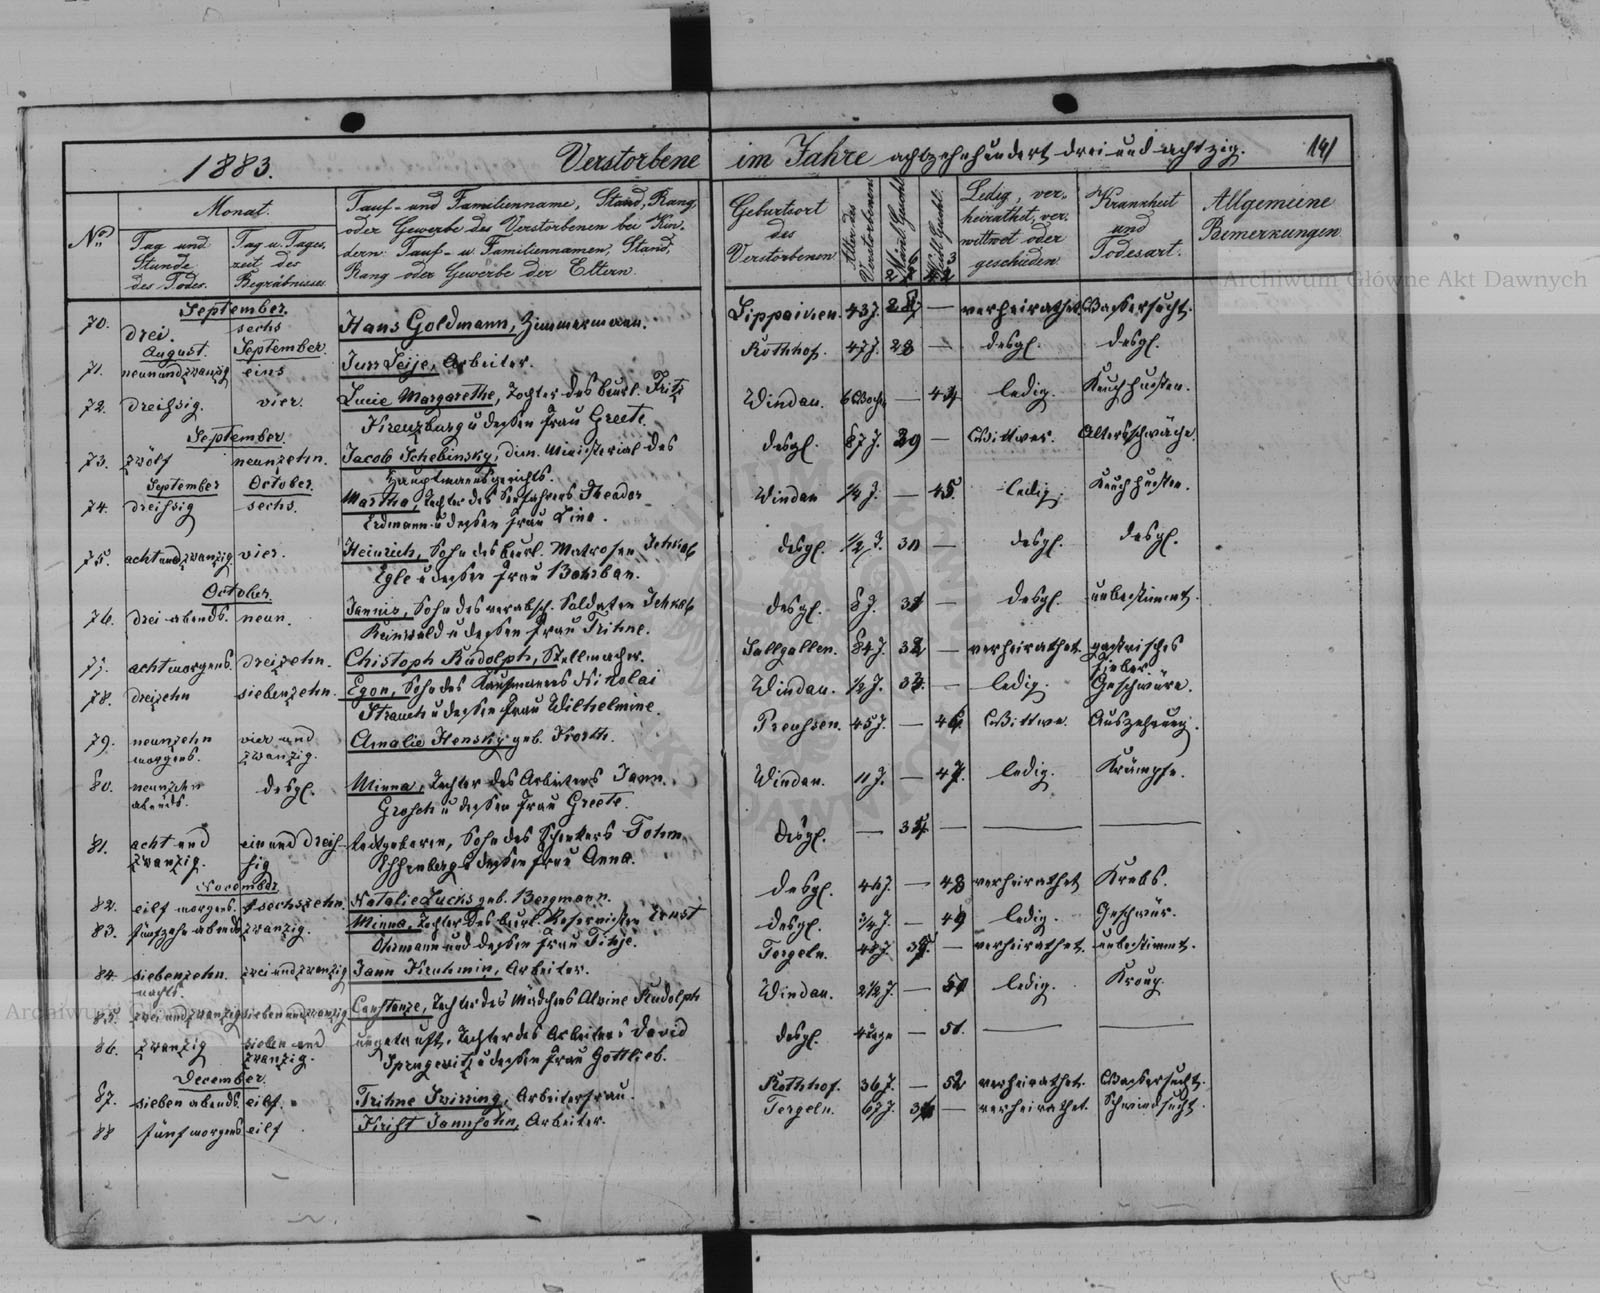 1883. Verstorbene im Jahre achtzehnhundert drei und achtzig. 141
No.
Monat.
Tag und Stunde des Todes.
Tag u. Tageszeit des Begräbnisses
Tauf- und Familienname, Stand, Rang
oder Gewerbe des Verstorbenen bei Kin-
dern: Tauf- u. Familiennamen, Stand,
Rang oder Gewerbe der Eltern.
Geburtsort
des
Verstorbenen
Alter des Verstorbenen
Männl. Geschl.
Weibl. Geschl.
Ledig, ver-
heirathet, ver-
wittwet oder
geschieden
Krankheit
und
Todesart.
Allgemeine
Bemerkungen
September.
70. drei. sechs Hans Goldmann, Zimmermann. 43 J. — verheirathet Wassersucht.
August. September.
71. neunundzwanzig eins Arbeiter. Rothhof. 47 J. 28 — desgl. desgl.
72. dreißig. vier. Lucie Margarethe, Tochter des beurl. Fritz
Kreuzburg u dessen Frau Greete. Windau. 6 Woch. — ledig. Keuchhusten.
September.
73. zwölf neunzehn. Jacob Schebinsky, dim. Ministerial des
Hauptmannsgerichts. desgl. 87 J. — Wittwer. Altersschwäche.
September October.
74. dreißig sechs. Martha, Tochter des Seefahrers Theodor
Erdmann u dessen Frau Line. Windau — 45. ledig. Keuchhusten.
75. acht und zwanzig vier. Heinrich, Sohn des beurl. Matrosen Jehkab
Egle u dessen Frau desgl. 1/2 J. — desgl. desgl.
October
76. drei abends. neun. Jannis, Sohn des verabsch. Soldaten Jehkab
Reinwald u dessen Frau Trihne. desgl. 8 J. — desgl. unbestimmt.
77. acht morgens. dreizehn. Christoph Rudolph, Stellmacher. Sallgallen. 84 J. — verheirathet gastrisches
Fieber
78. dreizehn siebenzehn. Egon, Sohn des Kaufmannes Nikolai
Strauch u dessen Frau Wilhelmine. Windau. 1/2 J. — ledig. Geschwüre.
79. neunzehn
morgens. vier und
zwanzig. Amalie Hensky geb. Preußen. 45 J. — 46 Wittwe. Auszehrung.
80. neunzehn
abends. desgl. Minna, Tochter des Arbeiters Jann
Grosch u dessen Frau Greete. Windau. 11 J. — 47. ledig. Krämpfe.
81. acht und
zwanzig. ein und dreis-
sig Todtgeboren, Sohn des
u dessen Frau Anna. desgl. — — —
November
82. eilf morgens. sechszehn. Natalie Lucks geb. Bergmann. desgl. — 48 verheirathet Krebs.
83. fünfzehn abends zwanzig. Minna, Tochter des beurl. Reservisten Ernst
Ohrmann und dessen Frau desgl. 3/4 J. — 49 ledig. Geschwür.
84. siebenzehn.
nachts. zwei und zwanzig Jann Kruhmin, Arbeiter. Tergeln. — verheirathet. unbestimmt.
85. zwei und zwanzig sieben und zwanzig Constanze, Tochter des Mädchens Alvine Rudolph Windau. 2 1/2 J. — 50 ledig. Kroup.
86. zwanzig sieben und
zwanzig. ungetauft, Tochter des Arbeiters David
u dessen Frau Gottlieb. desgl. 4 Tage — 51. — —
December.
87. sieben abends. eilf. Trihne Arbeiterfrau. Rothhof. 36 J. — 52 verheirathet. Wassersucht.
88 fünf morgens eilf Krist Jannsohn, Arbeiter. Tergeln. — verheirathet. Schwindsucht.
Archiwum Główne Akt Dawnych